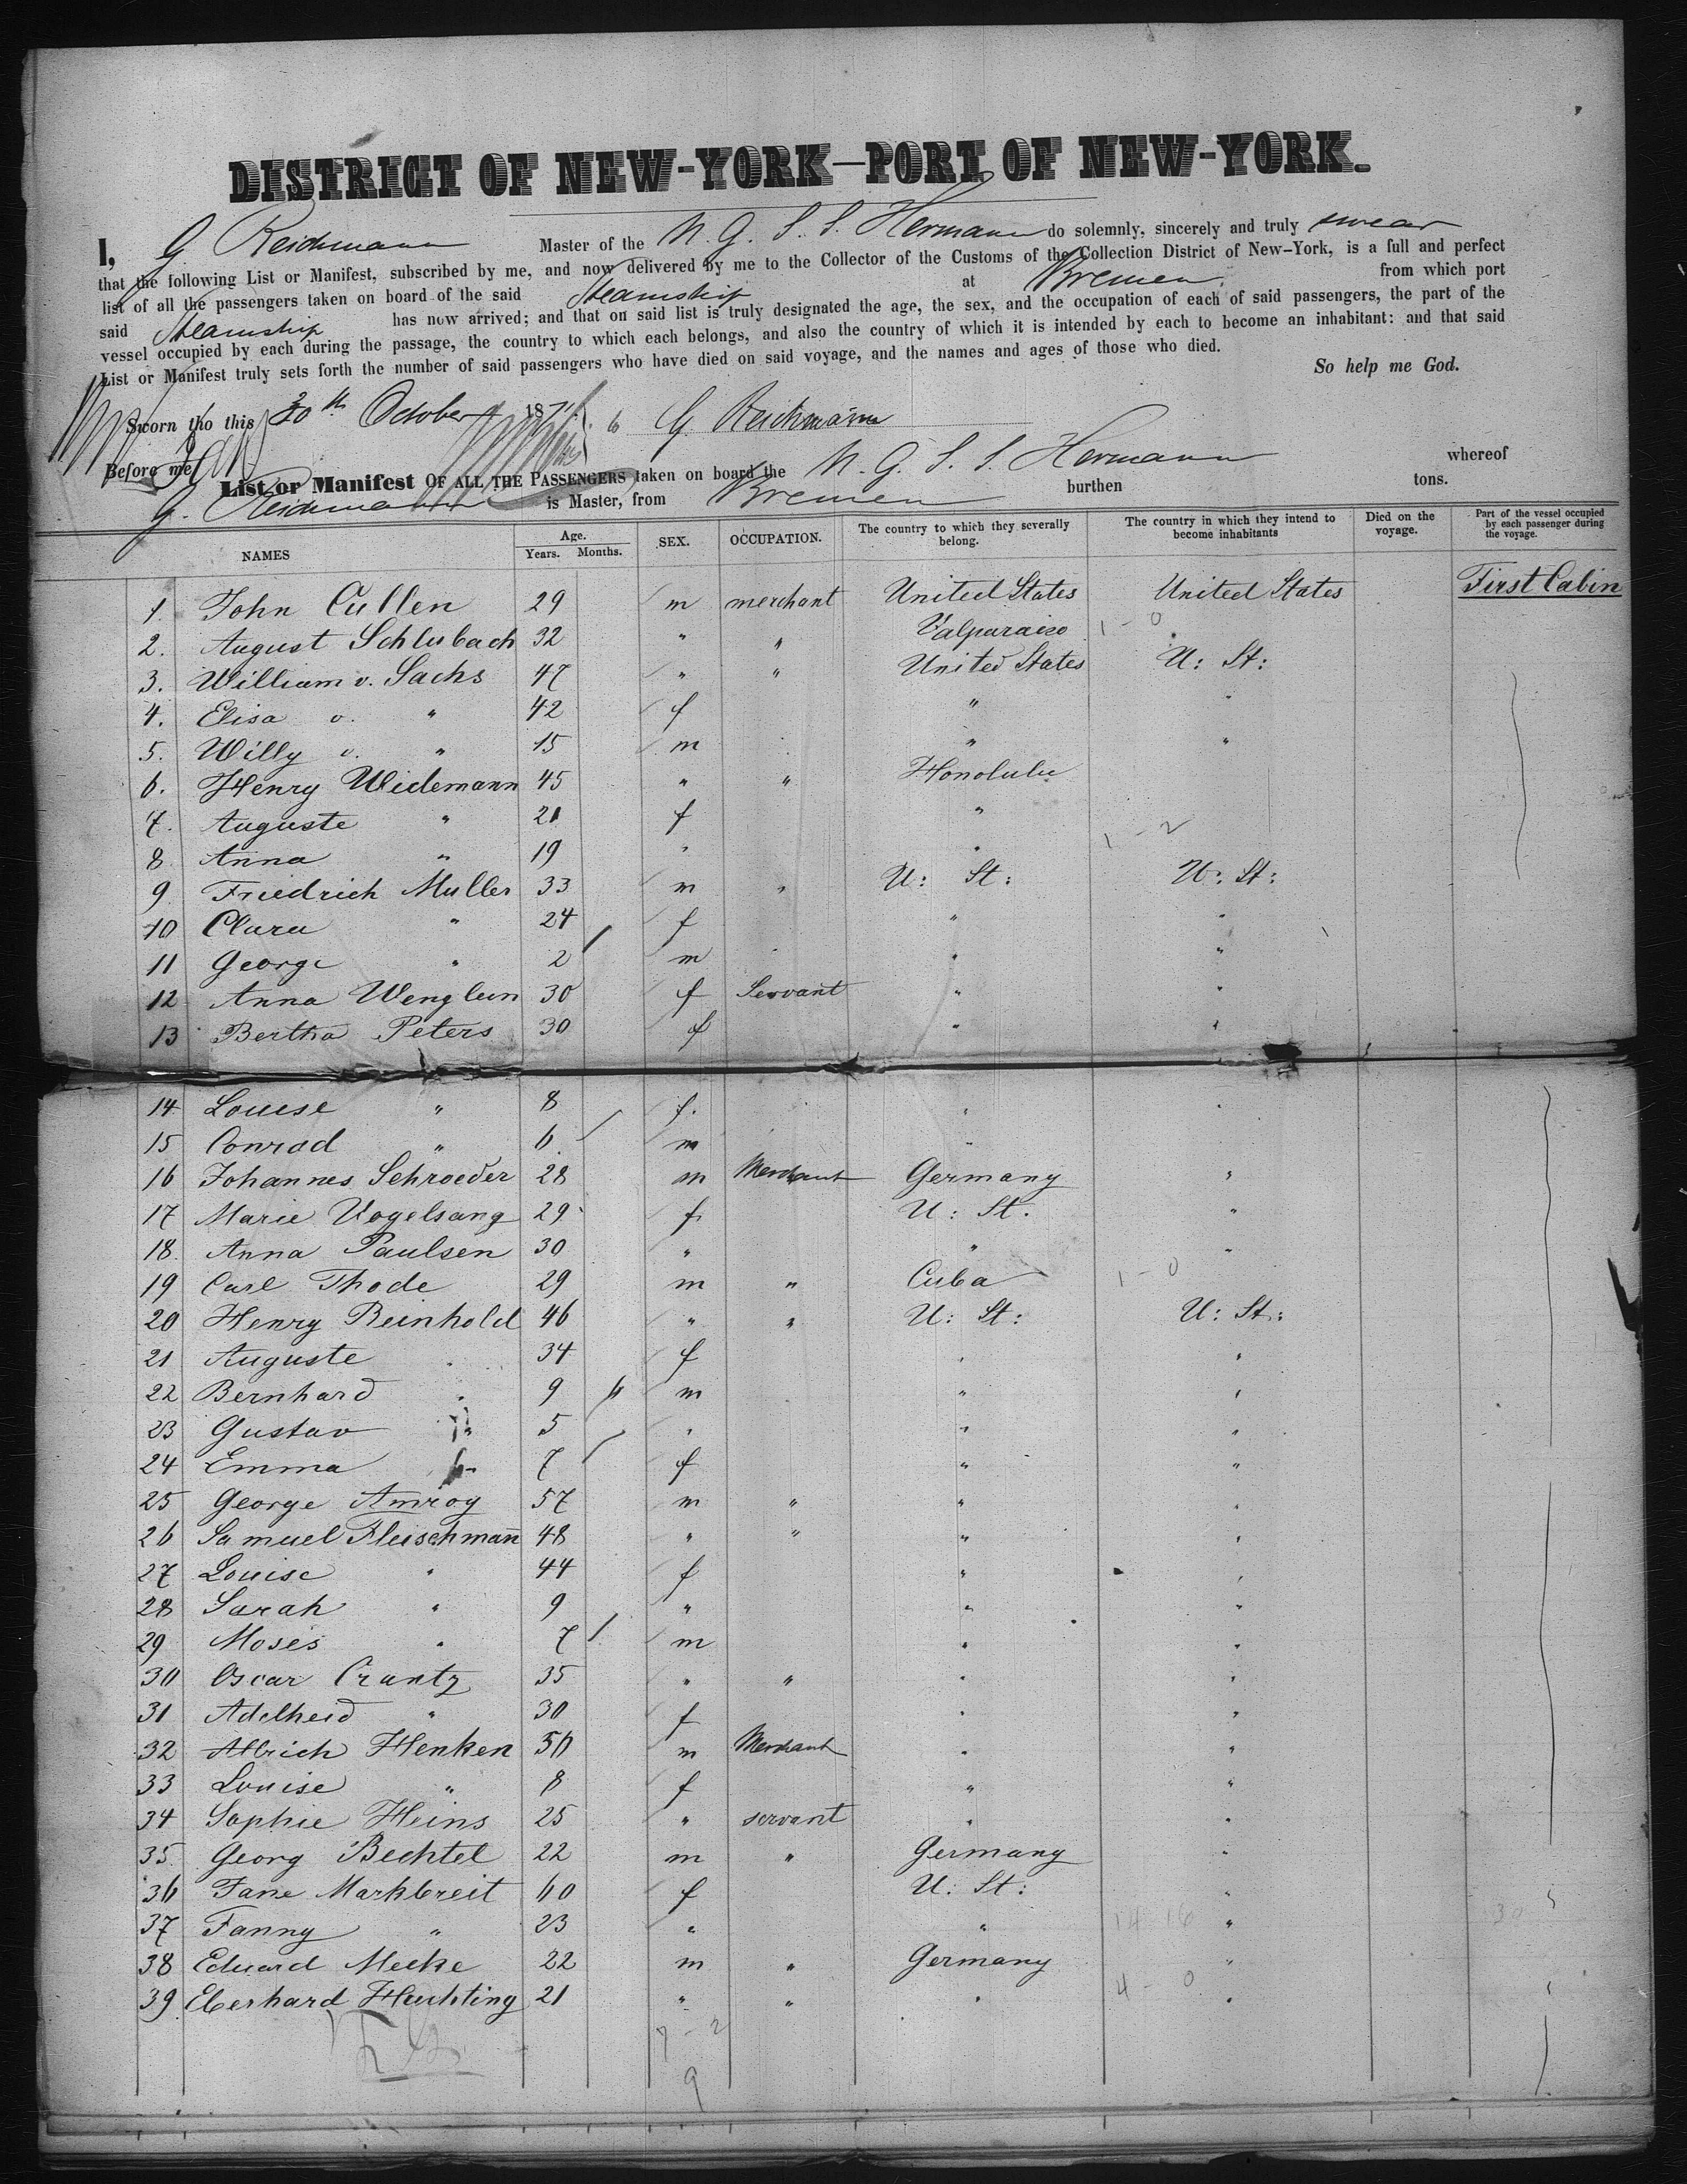 DISTRICT OF NEW-YORK—PORT OF NEW-YORK.
I, G Reichmann Master of the N. G. S. S. Hermann do solemnly, sincerely and truly swear
that the following List or Manifest, subscribed by me, and now delivered by me to the Collector of the Customs of the Collection District of New-York, is a full and perfect
list of all the passengers taken on board of the said Steamship at Bremen, from which port
said Steamship has now arrived; and that on said list is truly designated the age, the sex, and the occupation of each of said passengers, the part of the
vessel occupied by each during the passage, the country to which each belongs, and also the country of which it is intended by each to become an inhabitant: and that said
List or Manifest truly sets forth the number of said passengers who have died on said voyage, and the names and ages of those who died.
So help me God.
Sworn tho this 30th October 187 G Reichmann
Before me
List or Manifest OF ALL THE PASSENGERS taken on board the N. G. S. S. Hermann whereof
G. Reichmann is Master, from Bremen burthen tons.
NAMES Age. Years. Months. SEX. OCCUPATION. The country to which they severally belong. The country in which they intend to become inhabitants Died on the voyage. Part of the vessel occupied by each passenger during the voyage.
1. John Cullen 29 m merchant United States United States First Cabin
2. August Schlubach 32 " " Valparaiso 1 - 0
3. William v. Sachs 47 " " United States U: St:
4. Elisa v. " 42 f " "
5. Willy v. " 15 m " "
6. Henry Widemann 45 " " Honolulu
7. Auguste " 21 f "
8 Anna " 19 " " 1 - 2
9 Friedrich Muller 33 m " U: St: U: St:
10 Clara " 24 f " "
11 George " 2 m " "
12 Anna Wenglein 30 f Servant " "
13 Bertha Peters 30 f " "
14 Louise " 8 f. " "
15 Conrad " 6 m " "
16 Johannes Schroeder 28 m Merchant Germany "
17 Marie Vogelsang 29 f U: St. "
18 Anna Paulsen 30 " " "
19 Carl Thode 29 m " Cuba 1 - 0
20 Henry Reinhold 46 " " U: St: U: St:
21 Auguste " 34 f " "
22 Bernhard " 9 m " "
23 Gustav " 5 " " "
24 Emma " 7 f " "
25 George Amroy 57 m " " "
26 Samuel Fleischman̄ 48 " " " "
27 Louise " 44 f " "
28 Sarah " 9 " " "
29 Moses " 7 m " "
30 Oscar Crantz 35 " " " "
31 Adelheid " 30 f " "
32 Albrich Henken 50 m Merchant " "
33 Louise " 8 f " "
34 Sophie Heins 25 " servant " "
35 Georg Bechtel 22 m " Germany "
36 Jane Markbreit 60 f U: St: "
37 Fanny " 23 " " 14 16 " 30
38 Eduard Mecke 22 m " Germany "
39 Eberhard Huchting 21 " " " 4 - 0 "
7 - 2
9